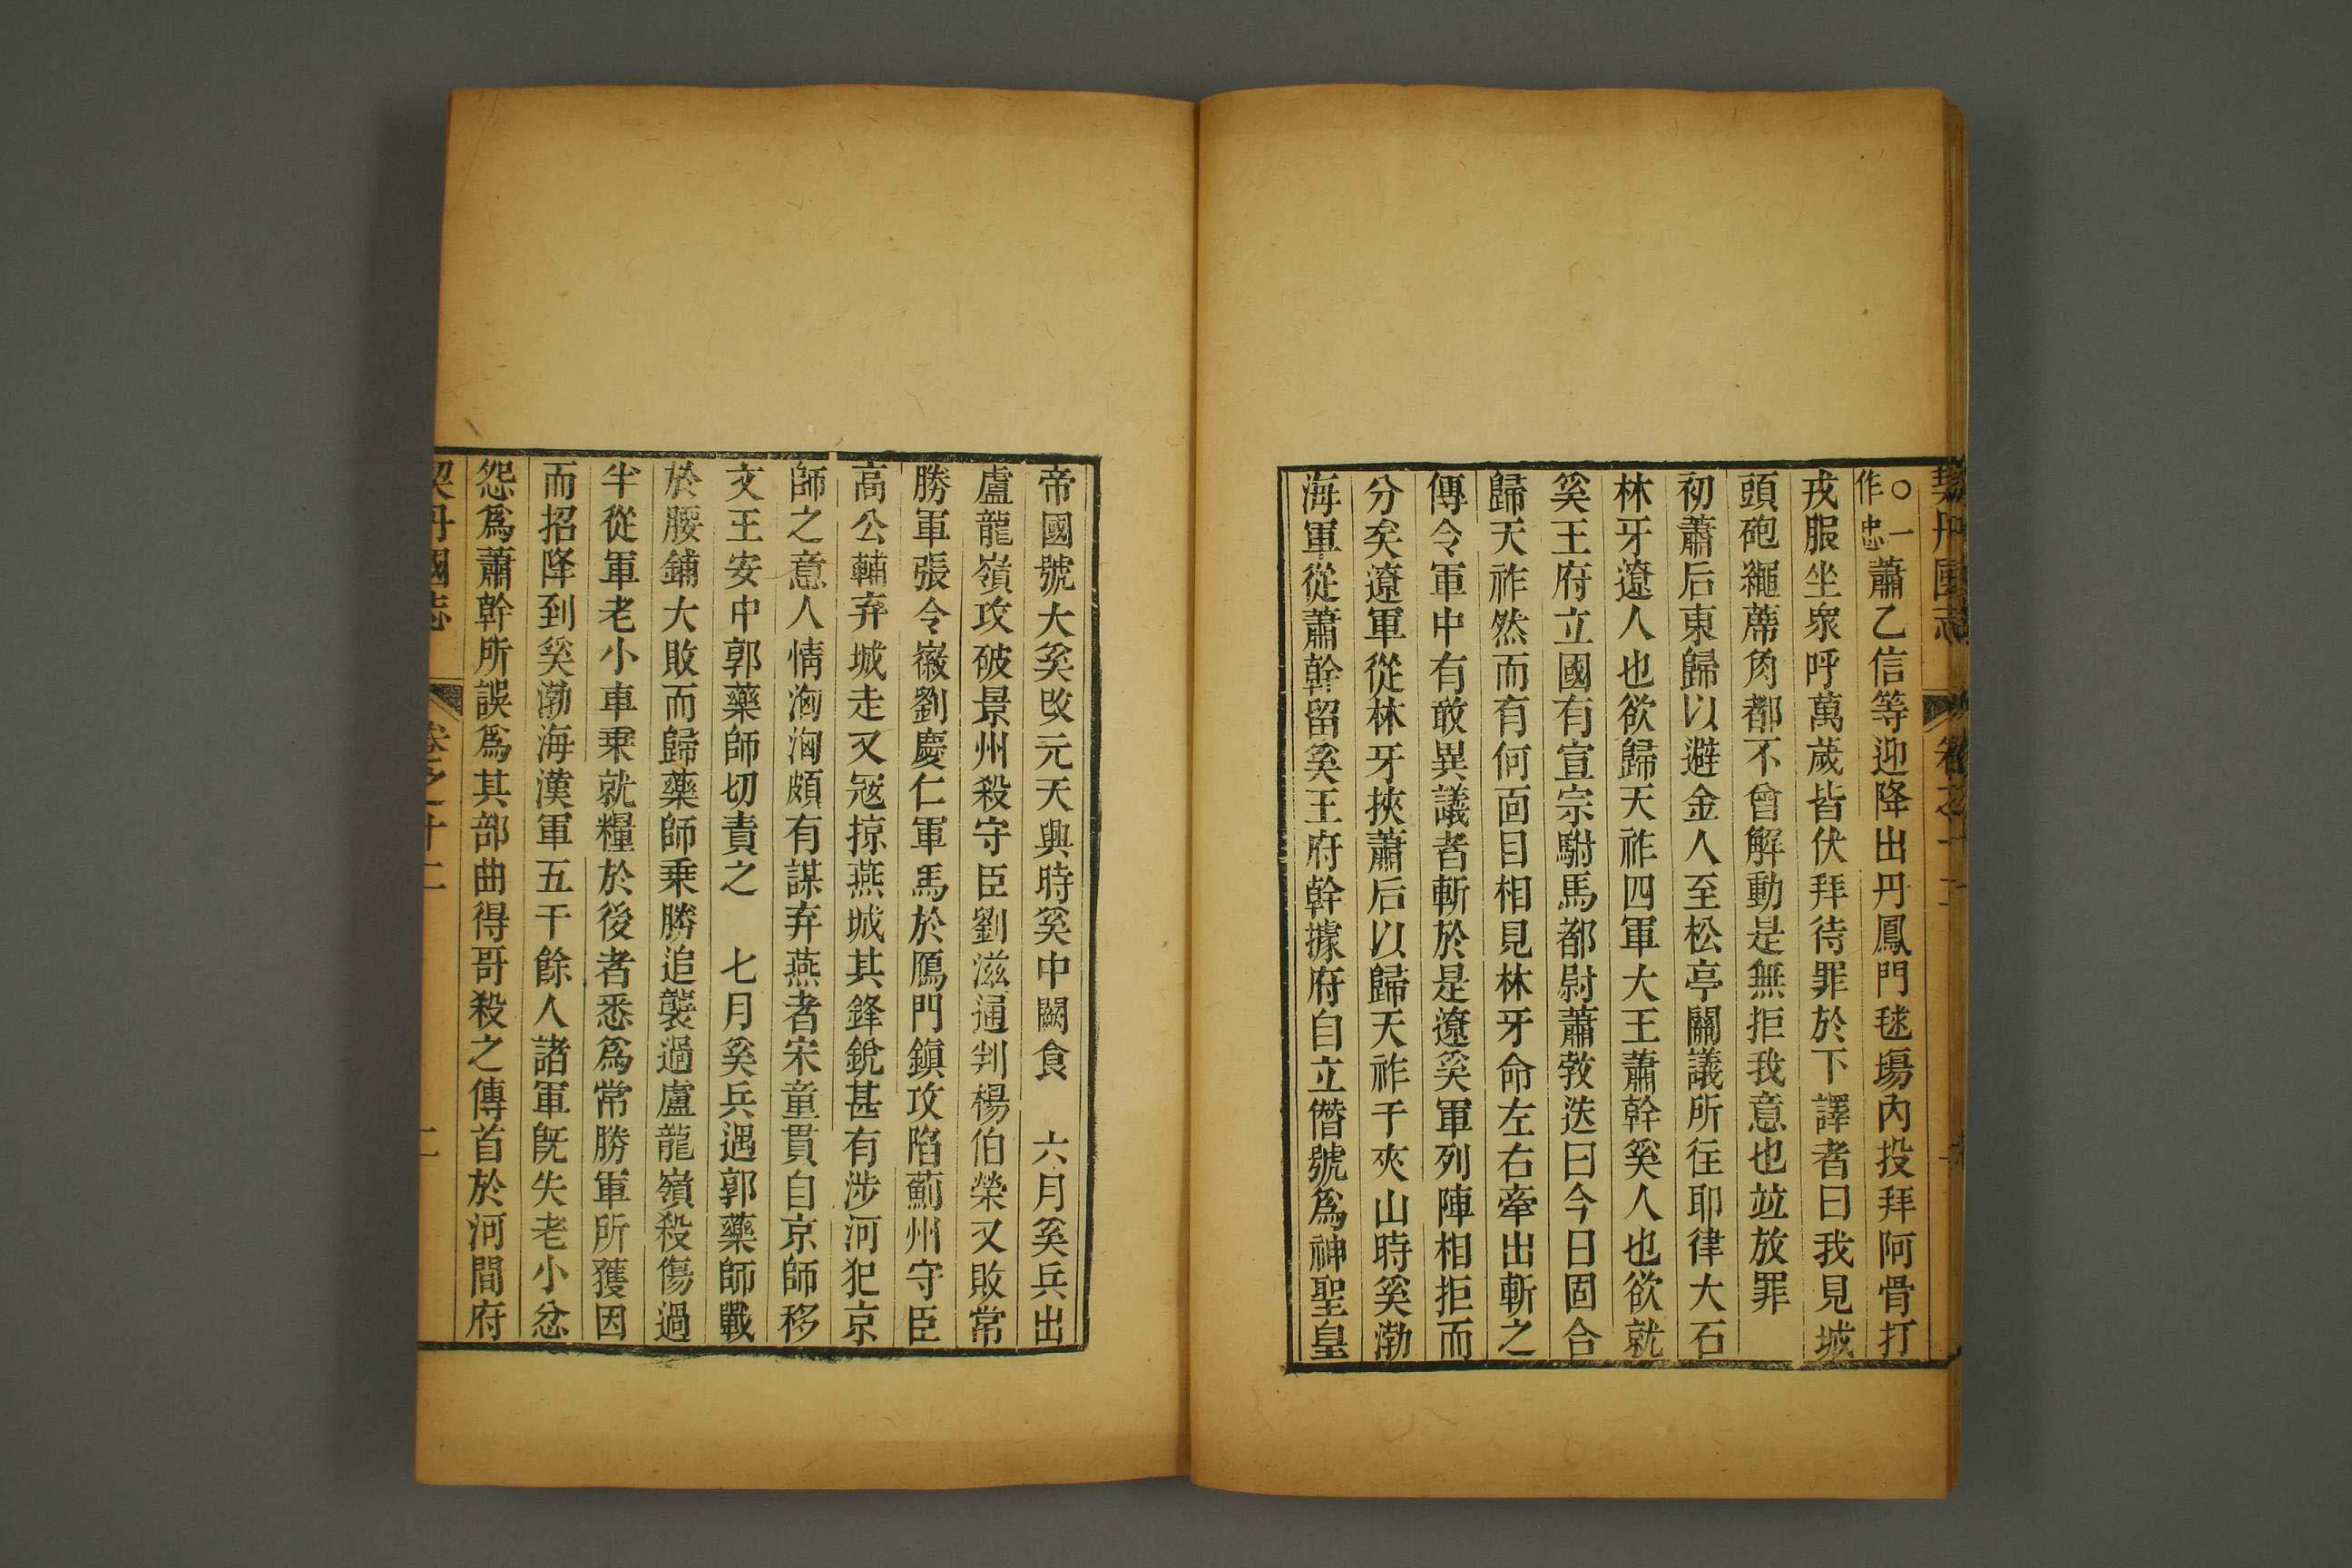 契丹國志　卷之十二
○一作忠蕭乙信等迎降出丹鳳門毬場內投拜阿骨打
戎服坐衆呼萬歲皆伏拜待罪於下譯者曰我見城
頭砲繩蓆角都不曾解動是無拒我意也並放罪
初蕭后東歸以避金人至松亭關議所往耶律大石
林牙遼人也欲歸天祚四軍大王蕭幹奚人也欲就
奚王府立國有宣宗駙馬都尉蕭敩迭曰今日固合
歸天祚然而有何面目相見林牙命左右牽出斬之
傳令軍中有敢異議者斬於是遼奚軍列陣相拒而
分矣遼軍從林牙挾蕭后以歸天祚于夾山時奚渤
海軍從蕭幹留奚王府幹據府自立僭號爲神聖皇
帝國號大奚改元天興時奚中闕食　六月奚兵出
盧龍嶺攻破景州殺守臣劉滋通判楊伯榮又敗常
勝軍張令徽劉慶仁軍馬於鴈門鎮攻陷薊州守臣
高公輔弃城走又宼掠燕城其鋒銳甚有涉河犯京
師之意人情洶洶頗有謀弃燕者宋童貫自京師移
文王安中郭藥師切責之　七月奚兵遇郭藥師戰
於腰鋪大敗而歸藥師乗勝追襲過盧龍嶺殺傷過
半從軍老小車乗就糧於後者悉爲常勝軍所獲因
而招降到奚渤海漢軍五千餘人諸軍旣失老小忿
怨爲蕭幹所誤爲其部曲得哥殺之傳首於河間府
契丹國志　卷之十二　二